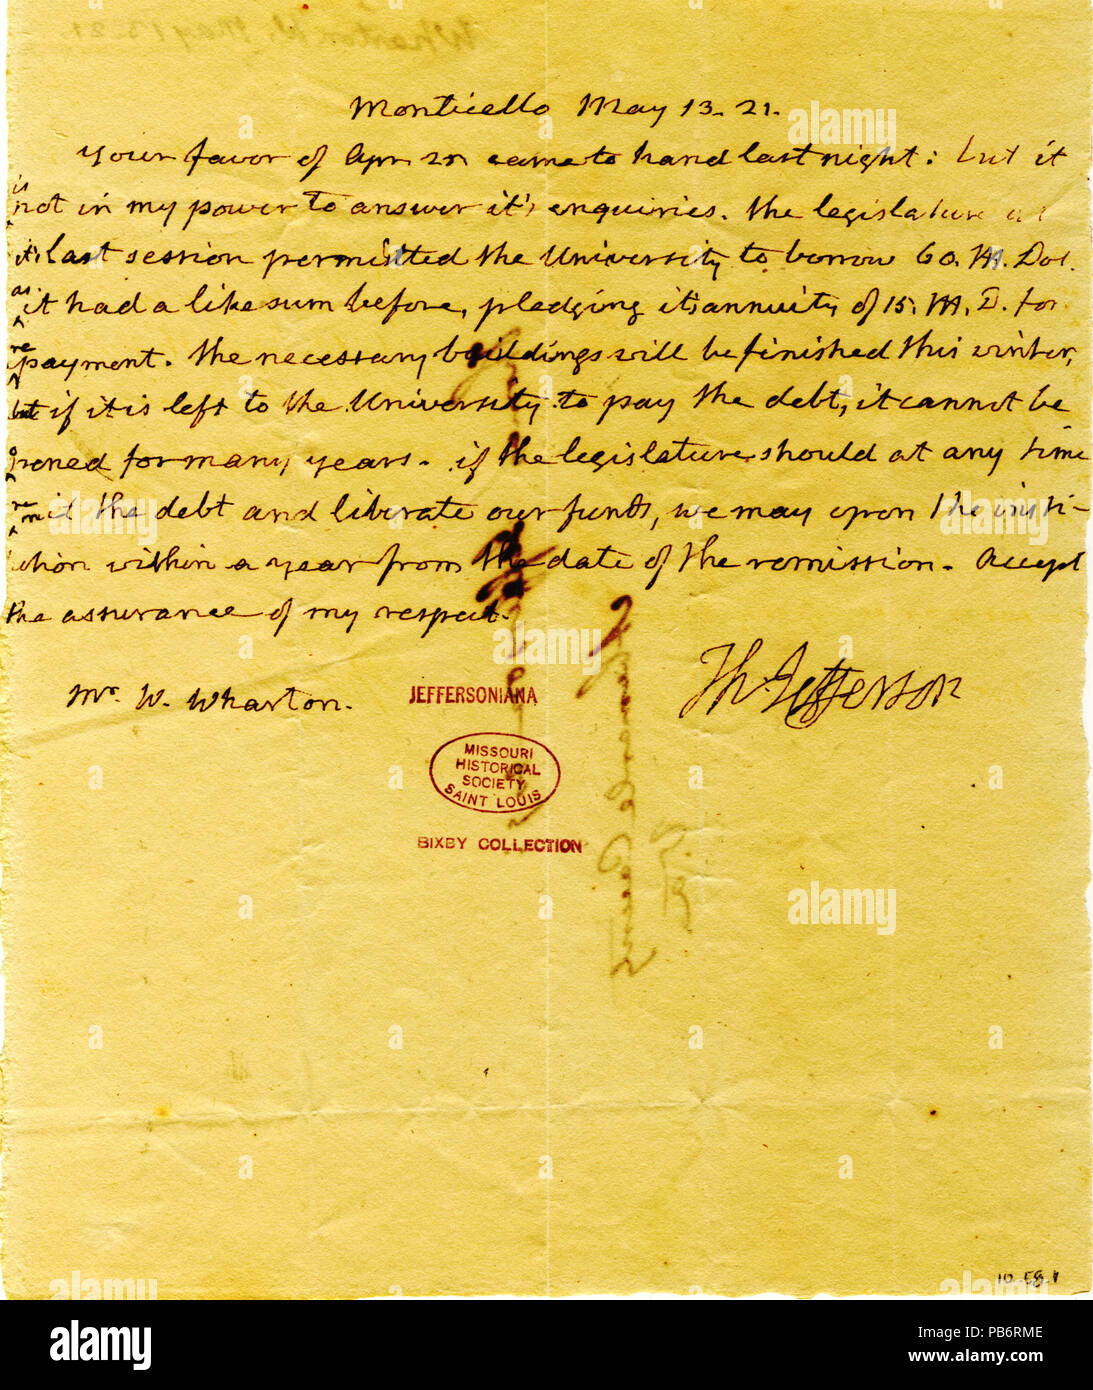 Monticello May 13. 21.
your favor of Apr. came to hand last night: but it
is
not in my power to answer it's enquiries. the legislature at
it's last session permitted the University to borrow 60. M. Dol.
as
it had a like sum before, pledging it's annuity of 15. M. D. for
re
payment. the necessary buildings will be finished this winter,
but if it is left to the University to pay the debt, it cannot be
opened for many years. if the legislature should at any time
re
mit the debt and liberate our funds, we may open the insti-
tution within a year from the date of the remission. Accept
the assurance of my respect.
Th: Jefferson
Mr. W. Wharton.
JEFFERSONIANA
MISSOURI
HISTORICAL
SOCIETY
SAINT LOUIS
BIXBY COLLECTION
10-58-1
alamy
Image ID: PB6RME
www.alamy.com